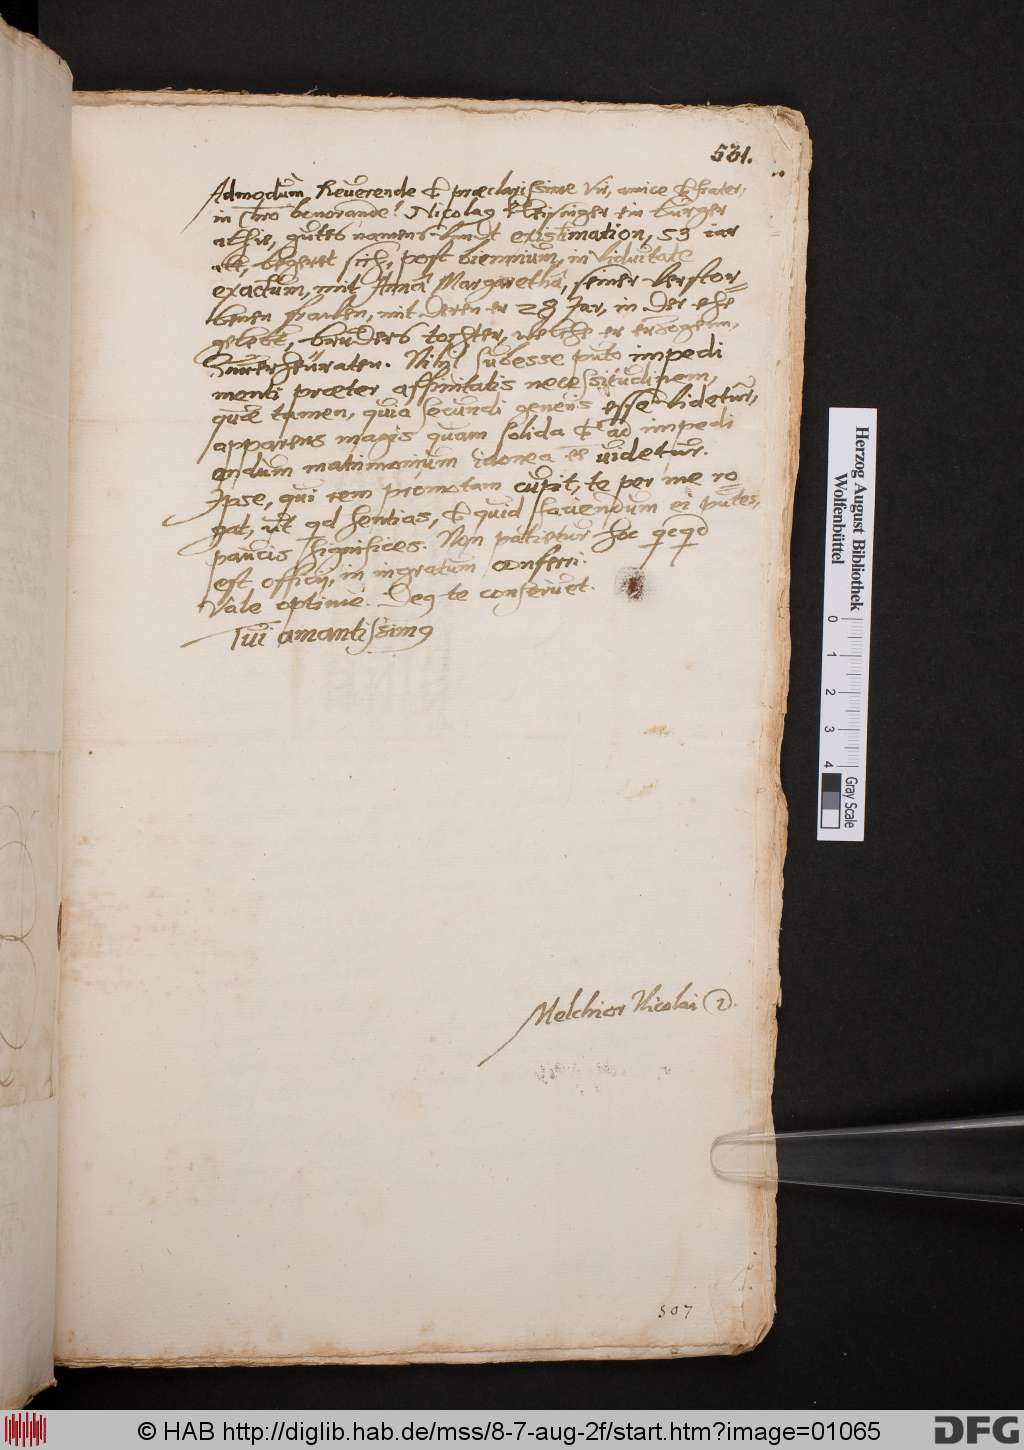 531.
Admodùm Reverende & præclarissime Vir, amice & frater,
in Chro honorande! Nicolaq Kteisinger ein bùrger
alhie, gùtes namens vndt existimation, 53 iar
alt, begeret sich, post biennium, in viduitate
exactum, mit Annâ Margarethâ, seiner verstor
benen frawen, mit deren er 28 Jar, in der ehe
gelebt, brùders tochter, welche er erzogenn,
Zùverheùraten. Nihil subesse puto impedi
menti præter affinitatis necessitudinem,
quæ tamen, quia secundi generis esse videtur,
apparens magis quam solida & ad impedi
endum matrimonium idonea eê videtur.
Ipse, qui rem promotam cupit, te per me ro
gat, ut qd sentias, & quid faciendum ei putes,
paucis significes. Non patietur hoc qcqd
est officij, in ingratum conferri.
Vale optimè. Deq te conservet.
Tui amantissimq
Melchior Nicolai D.
507
Herzog August Bibliothek
Wolfenbüttel
0 1 2 3 4
Gray Scale
© HAB http://diglib.hab.de/mss/8-7-aug-2f/start.htm?image=01065
DFG